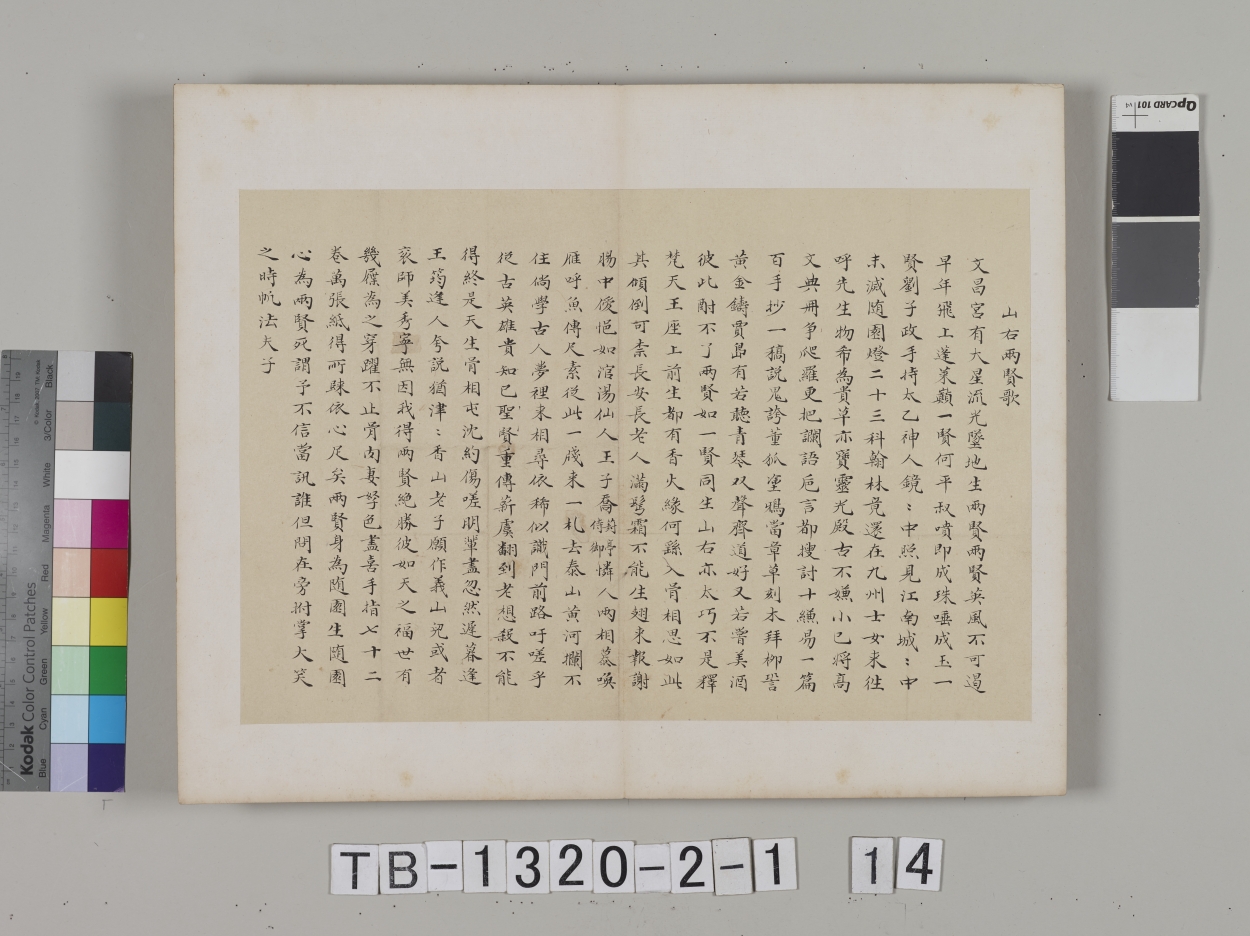 山右兩賢歌
文昌宮有大星流光墜地生兩賢兩賢英風不可遏
早年飛上蓬萊巔一賢何平叔噴即成珠唾成玉一
賢劉子政手持太乙神人鏡〻中照見江南城〻中
未滅隨園燈二十三科翰林竟還在九州士女來往
呼先生物希為貴草亦寶靈光殿古不嫌小已將高
文典冊爭爬羅更把讕語卮言都搜討十縑易一篇
百手抄一稿說鬼誇董狐塗鴉當章草刻木拜柳詧
黃金鑄賈島有若聽青琴双聲齊道好又若嘗美酒
彼此酣不了兩賢如一賢同生山右亦太巧不是釋
梵天王座上前生都有香火緣何繇入骨相思如此
其傾倒可柰長安長老人滿鬢霜不能生翅來報謝
腸中優悒如涫湯仙人王子喬莉亭侍御憐人兩相慕喚
雁呼魚傳尺素從此一牋來一札去泰山黃河攔不
住倘學古人夢裡來相尋依稀似識門前路吁嗟乎
從古英雄貴知己聖賢重傳薪虞翻到老想殺不能
得終是天生骨相屯沈約傷嗟朋輩盡忽然遲暮逢
王筠逢人夸說猶津〻香山老子願作義山兒或者
衮師美秀寧無因我得兩賢絕勝彼如天之福世有
幾屨為之穿躍不止骨肉妻孥色盡喜手指七十二
卷萬張紙得所歸依心足矣兩賢身為隨園生隨園
心為兩賢死謂予不信當訊誰但問在旁拊掌大笑
之時帆法夫子
Qp CARD 101 v4
© Kodak, 2007, TM: Kodak
Kodak Color Control Patches
Blue Cyan Green Yellow Red Magenta White 3/Color Black
TB-1320-2-1 14